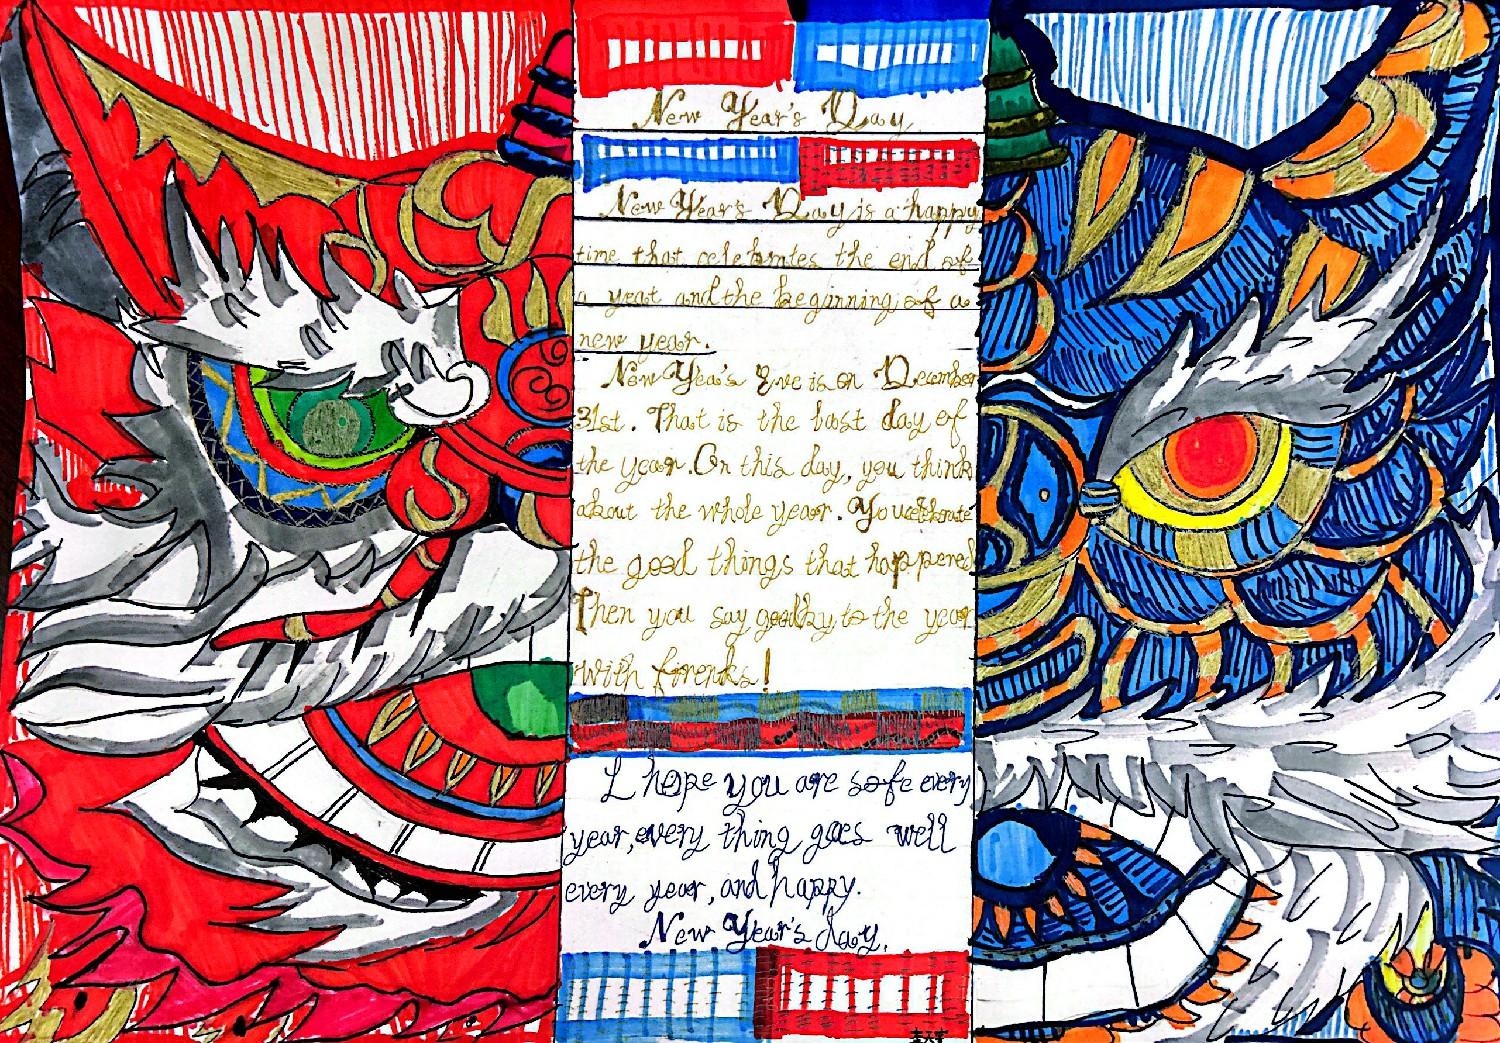 New Year's Day
New Year's Day is a happy
time that celebrates the end of
a yeat and the beginning of a
new year.
New Yea's Eve is on December
31st. That is the last day of
the year. On this day, you think
about the whole year. You celebrate
the good things that happened
Then you say goodby to the year
with
I hope you are safe every
year, every thing goes well
every year, and happy.
New Year's day.